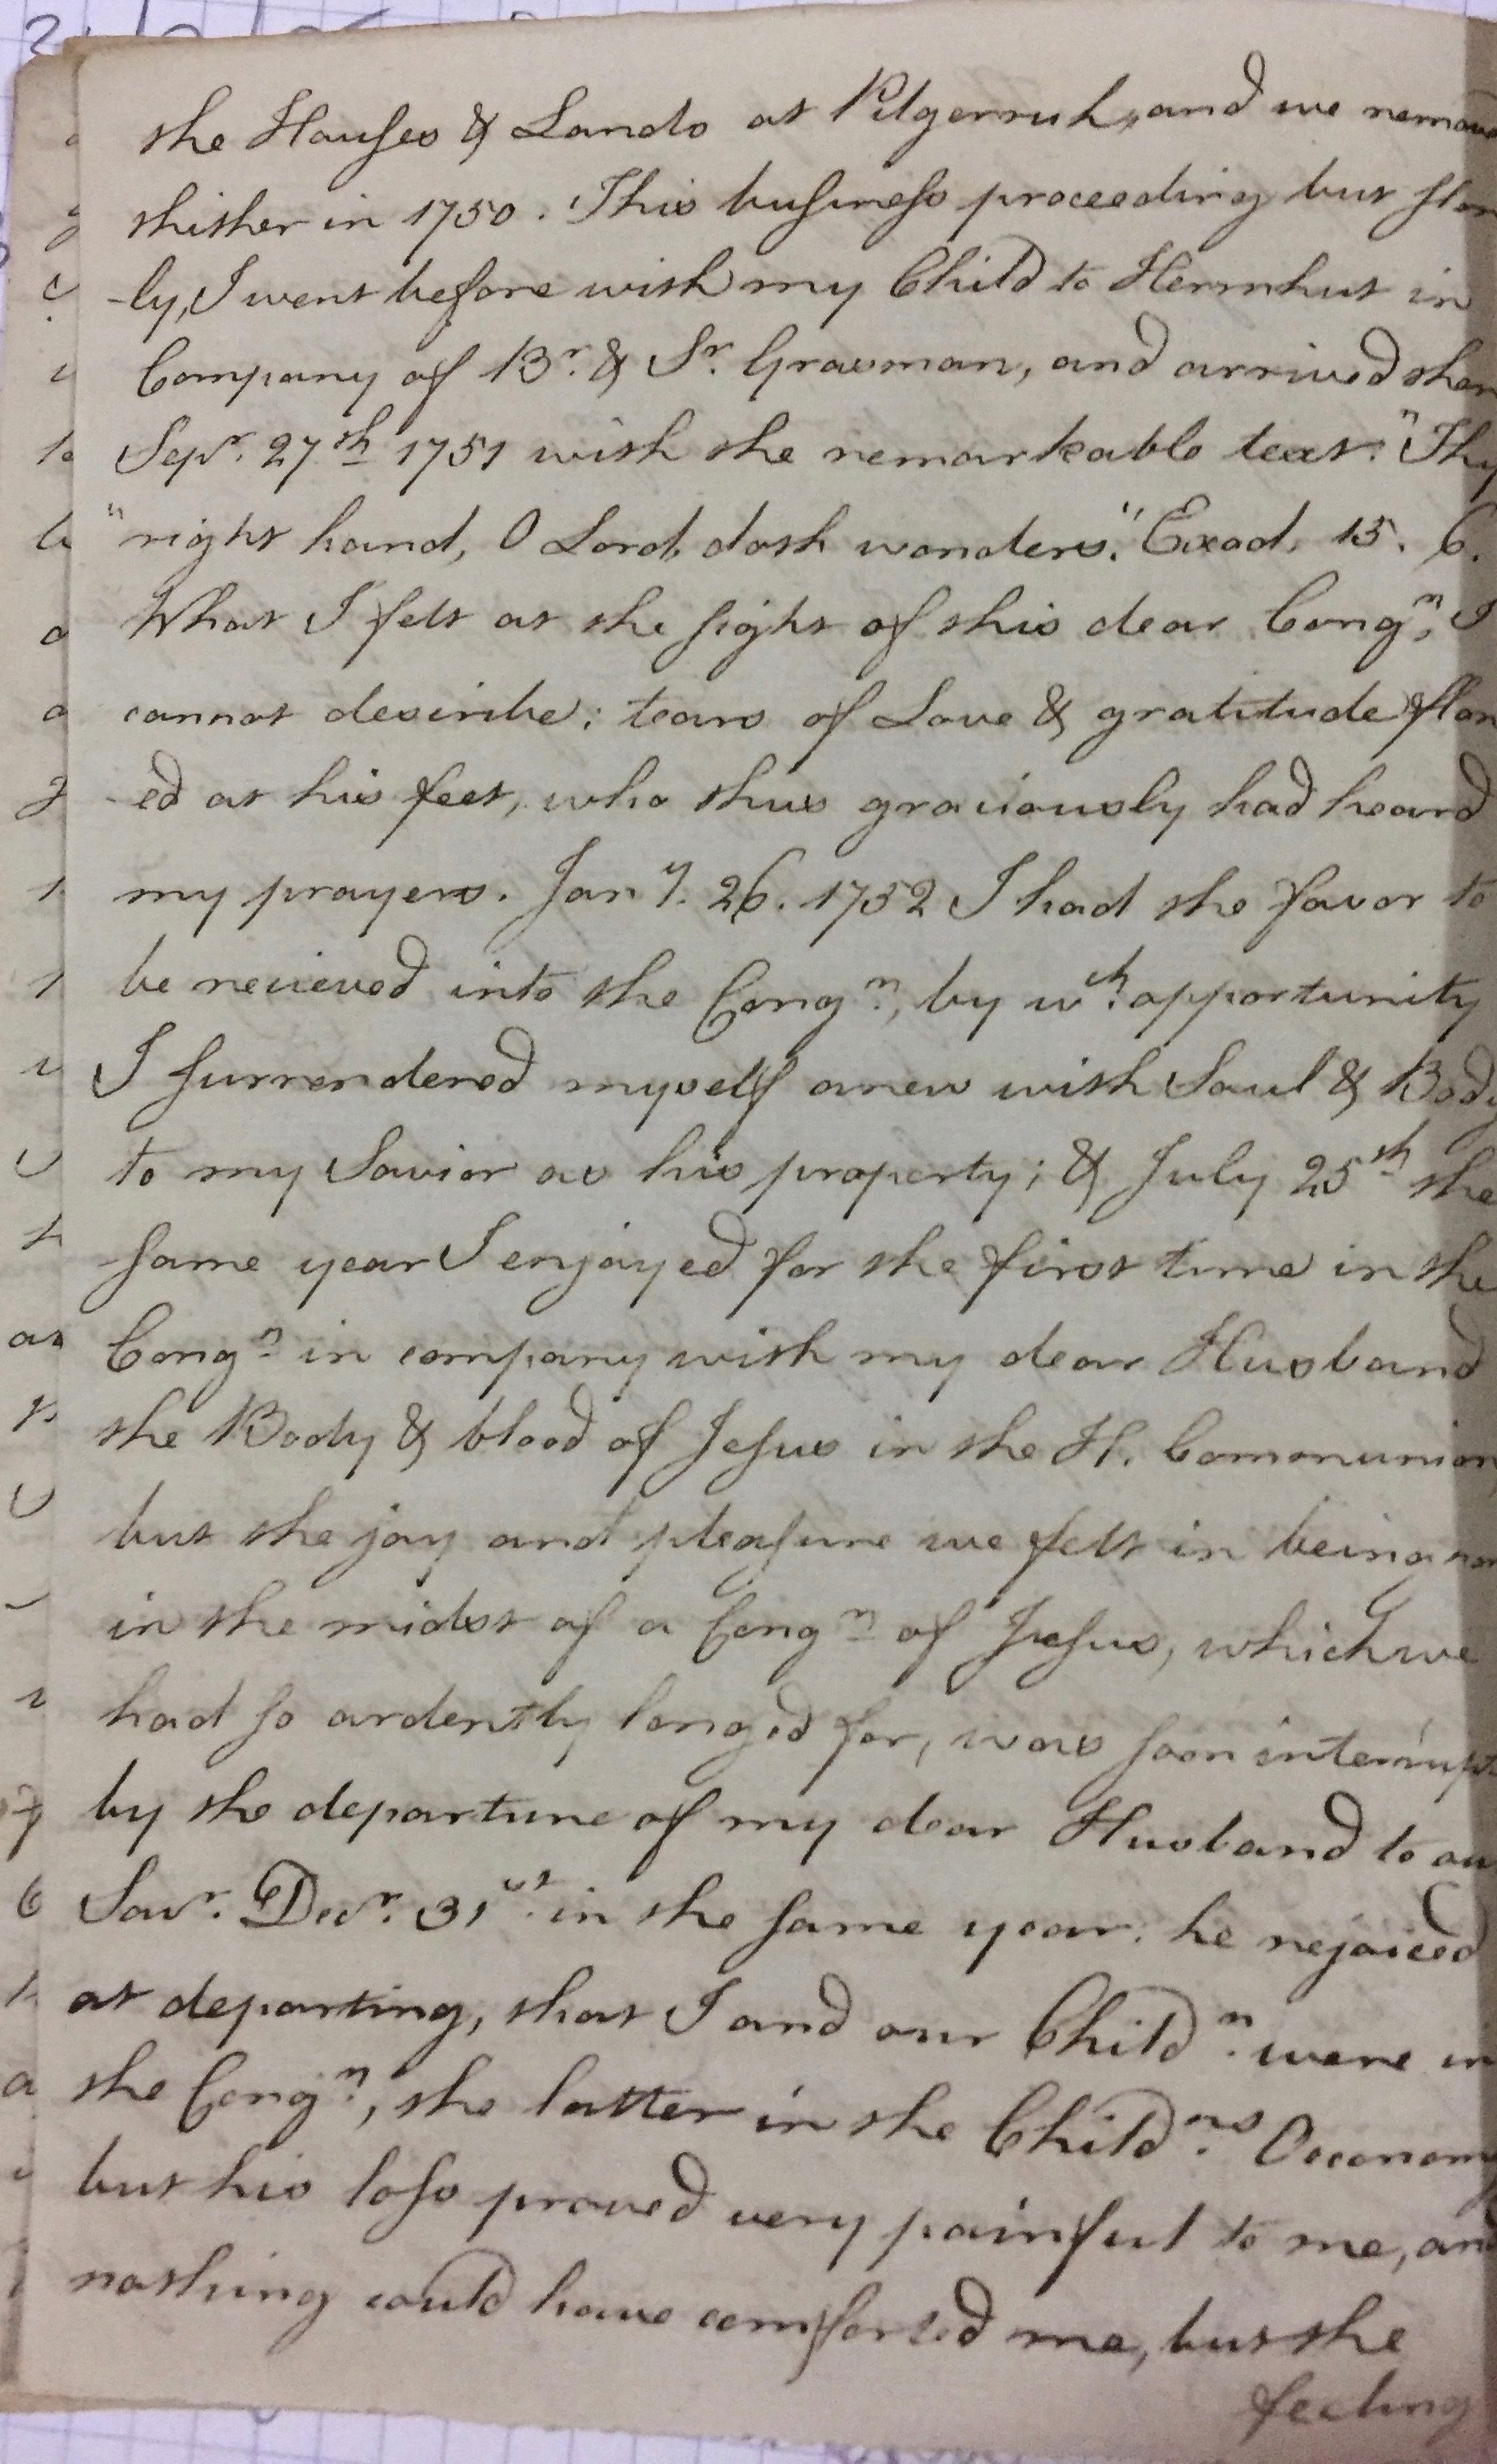 the Houses & Lands at Pilgerruh, and we remov
thither in 1750. This business proceeding but slow
-ly, I went before with my Child to Herrnhut in
Company of Br. & Sr. Grasman, and arrived ther
Sepr. 27th 1751 with the remarkable text: "Thy
"right hand, O Lord, doth wonders." Exod. 15. 6.
What I felt at the sight of this dear Congn, I
cannot describe; tears of Love & gratitude flow
-ed at his feet, who thus graciously had heard
my prayers. Jany. 26. 1752 I had the favor to
be recieved into the Congn, by wch. opportunity
I surrendered myself anew with Soul & Body
to my Savior as his property; & July 25th the
same year I enjoyed for the first time in the
Congn in company with my dear Husband
the Body & blood of Jesus in the H. Communion
but the joy and pleasure we felt in being now
in the midst of a Congn of Jesus, which we
had so ardently longed for, was soon interrupt
by the departure of my dear Husband to our
Savr. Decr. 31st. in the same year: he rejoiced
at departing, that I and our Childn. were in
the Congn, the latter in the Childns. Oeconomy
but his loss proved very painful to me, and
nothing could have comforted me, but the
feeling